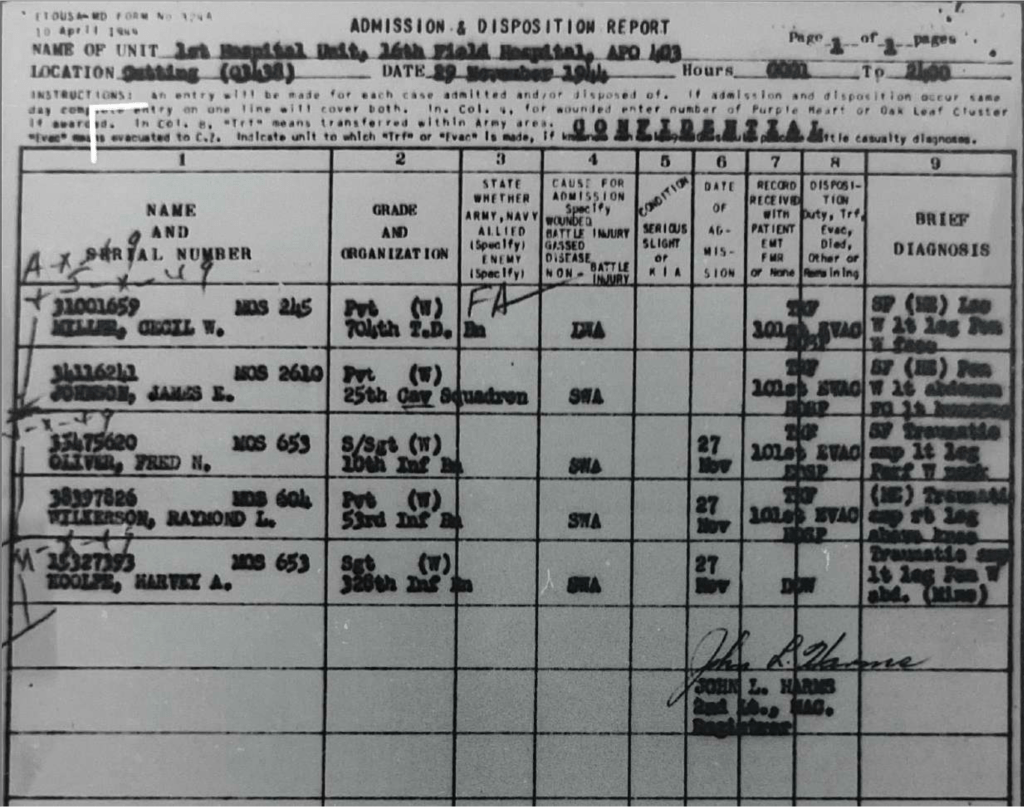 ETOUSA-MD FORM No 323A
10 April 1944
ADMISSION & DISPOSITION REPORT
Page 1 of 1 pages
NAME OF UNIT 1st Hospital Unit, 16th Field Hospital, APO 403
LOCATION Gutting (Q1438) DATE 29 November 1944 Hours 0001 To 2400
INSTRUCTIONS: an entry will be made for each case admitted and/or disposed of. If admission and disposition occur same
day entry on one line will cover both. In Col. 4, for wounded enter number of Purple Heart or Oak Leaf Cluster
if awarded. In Col. 8, "Trf" means transferred within Army area.
CONFIDENTIAL
"Evac" means evacuated to C.Z. Indicate unit to which "Trf" or "Evac" is made, if battle casualty diagnoses.
1 2 3 4 5 6 7 8 9
NAME AND SERIAL NUMBER
GRADE AND ORGANIZATION
STATE WHETHER ARMY, NAVY ALLIED (Specify) ENEMY (Specify)
CAUSE FOR ADMISSION Specify WOUNDED BATTLE INJURY GASSED DISEASE NON-BATTLE INJURY
CONDITION SERIOUS SLIGHT or KIA
DATE OF ADMISSION
RECORD RECEIVED WITH PATIENT EMT FMR or None
DISPOSITION Duty, Trf, Evac, Died, Other or Remaining
BRIEF DIAGNOSIS
A-x-49
5-x-49
FA
31001659 MOS 245 Pvt (W) TRF SF (HE) Lac
MILLER, CECIL W. 704th T.D. Bn LWA 101st EVAC HOSP W lt leg Pen
W face
34116241 MOS 2610 Pvt (W) TRF SF (HE) Pen
JOHNSON, JAMES E. 25th Cav Squadron SWA 101st EVAC HOSP W lt abdomen
FC lt humerus
33475620 MOS 653 S/Sgt (W) 27 TRF SF Traumatic
OLIVER, FRED N. 10th Inf Bn SWA Nov 101st EVAC HOSP amp lt leg
Perf W neck
38397826 MOS 604 Pvt (W) 27 TRF (HE) Traumatic
WILKERSON, RAYMOND L. 53rd Inf Bn SWA Nov 101st EVAC HOSP amp rt leg
above knee
15327393 MOS 653 Sgt (W) 27 Traumatic amp
KOOLPE, HARVEY A. 328th Inf Bn SWA Nov DOW lt leg Pen W
abd. (Mine)
John L. Harms
JOHN L. HARMS
2nd Lt., MAC.
Registrar